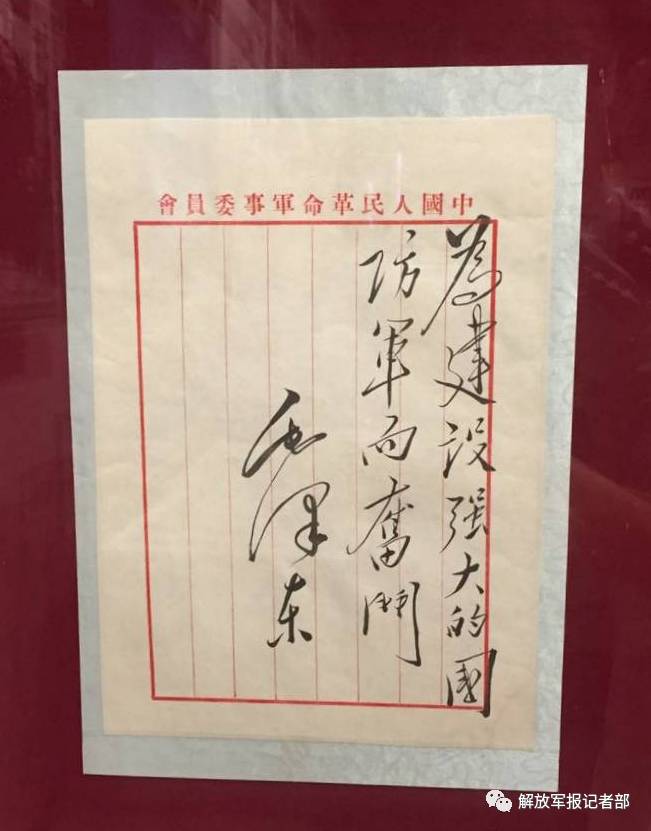 中國人民革命軍事委員會
為建設强大的國
防軍而奮鬥
毛澤东
解放军报记者部